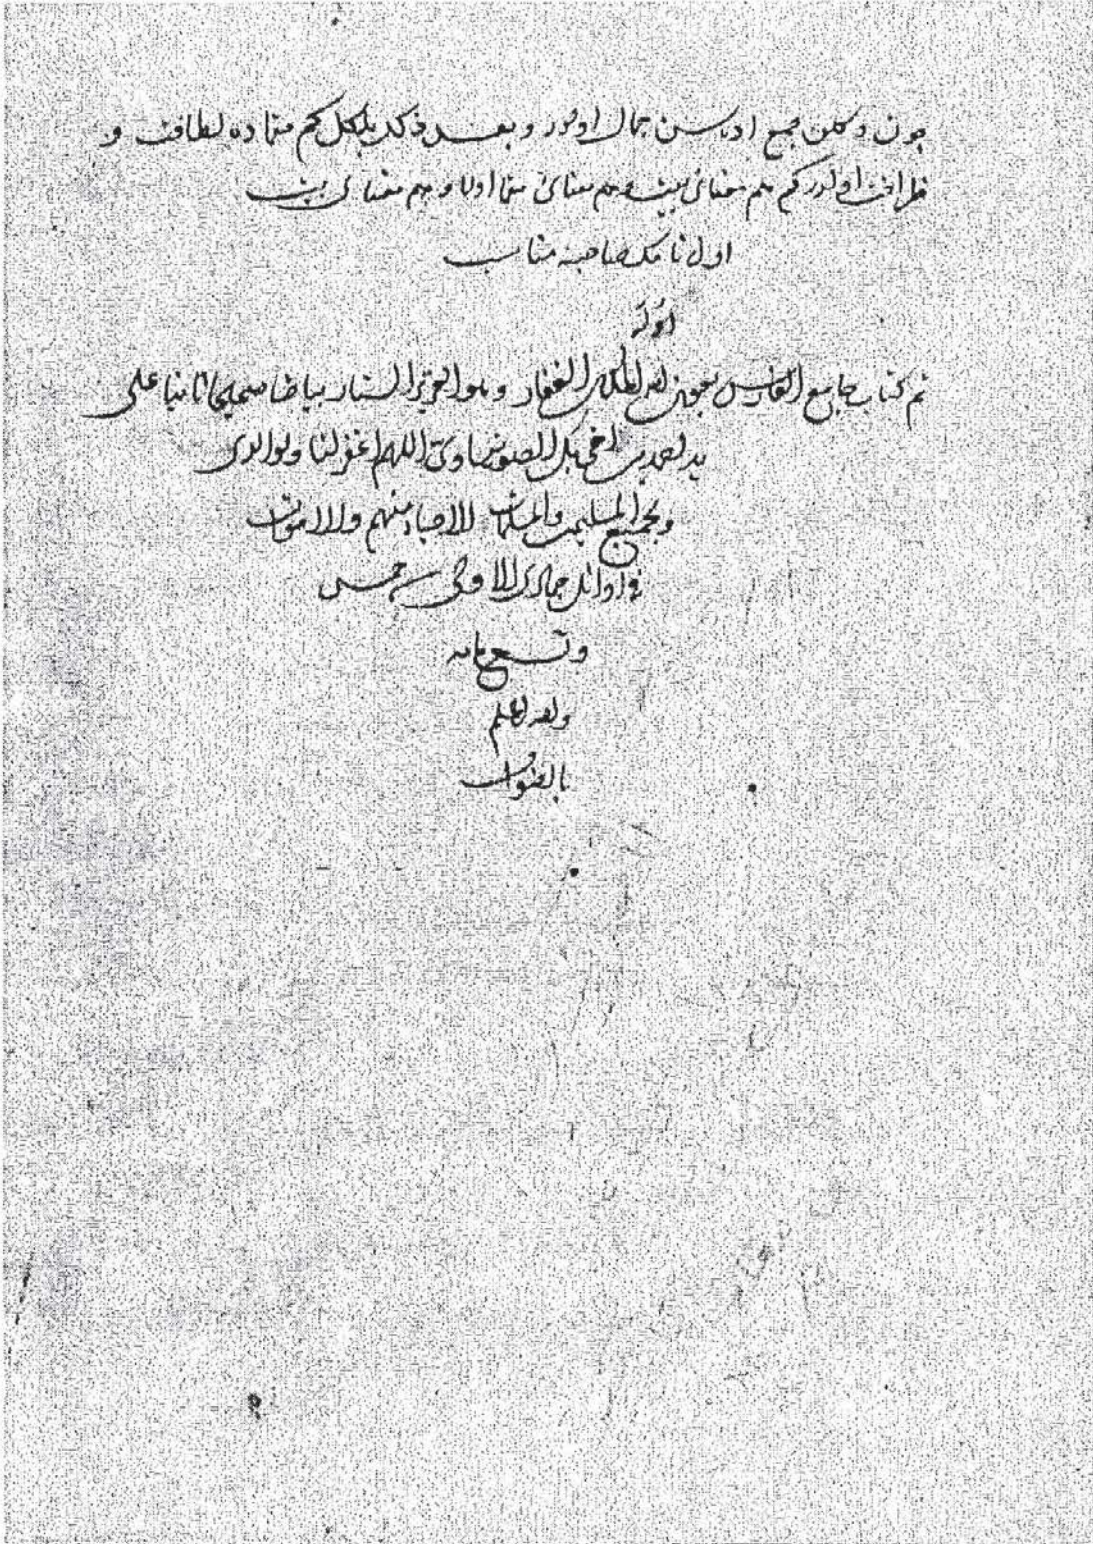 چون دكلن مجمع اد تاسن جمال اولور و بعده ذكر بلكل كم معماده لطافت و
ظرافت اولدر كم هم معناى بيت و هم معناى معما اولا و هم معناى بيت
اول نامك صاحبنه مناسب
اوله
تم كتاب جامع الفارس بعون الله الملك الغفار و هو العزيز الستار بياضا صحيحا ثانيا على
يد اللهم اغفر لنا ولوالدى
ولجميع المسلمين والمسلمات الاحياء منهم والاموات
فى اوائل جمادى الاولى سنه خمس
وتسعمايه
والله اعلم
بالصواب